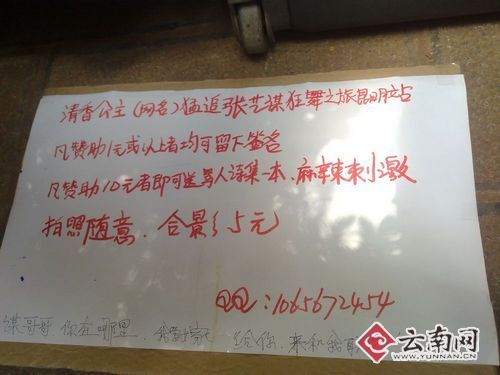 清香公主（网名）猛追张艺谋狂舞之旅昆明站
凡赞助1元或以上者均可留下签名
凡赞助10元者即可送骂人诗集一本、麻辣刺激
拍照随意.合影5元
QQ:1065672454
谋哥哥 你在哪里 给你,来和我联
云南网
WWW.YUNNAN.CN